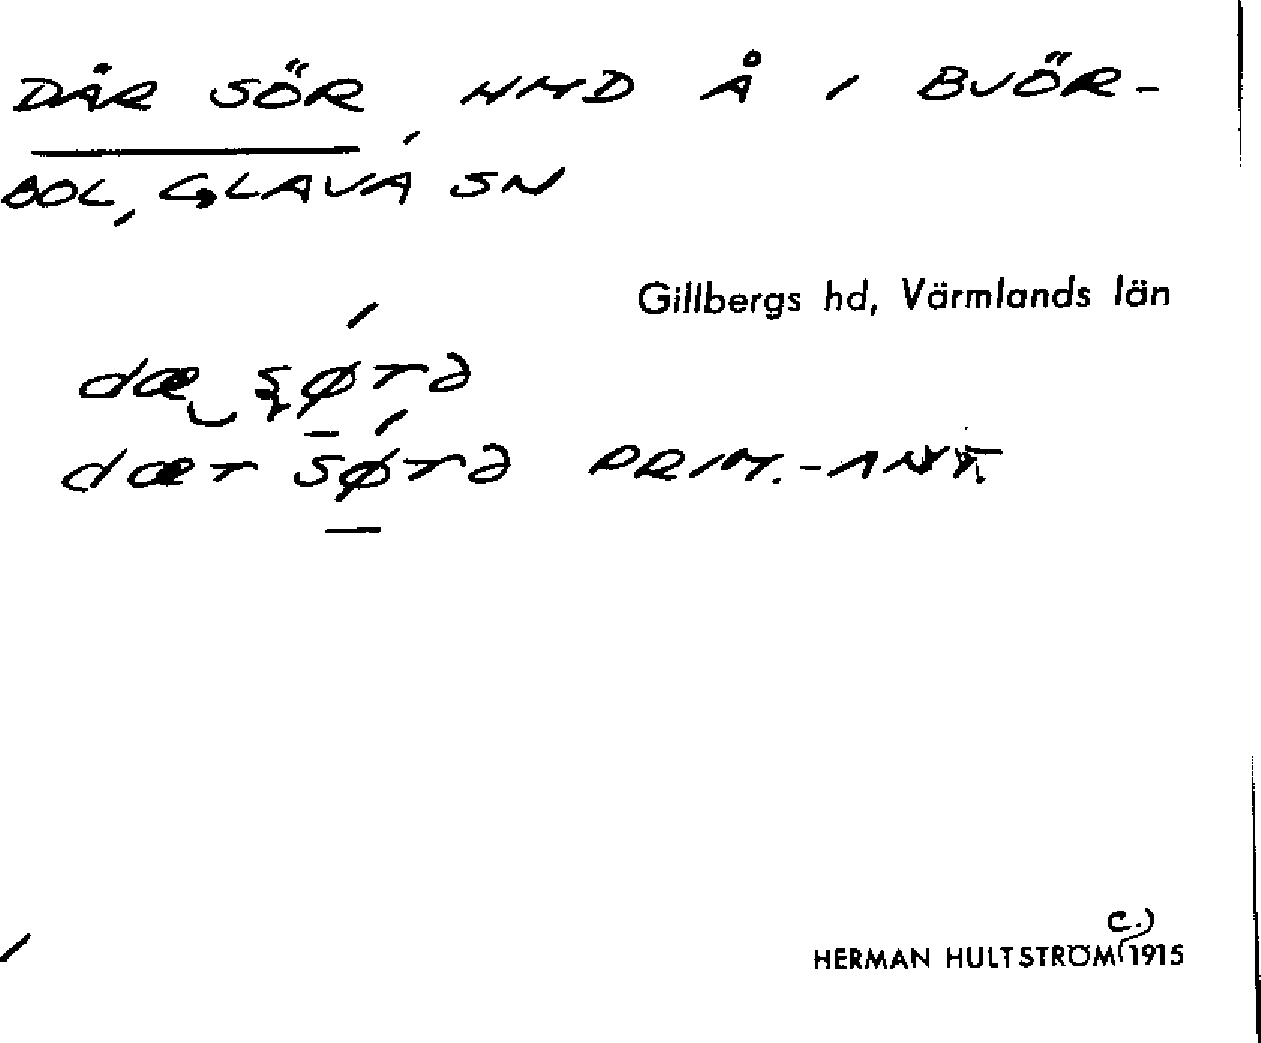 DÄR SÖR, HMD Å I BJÖR-
BOL, GLAVA SN
Gillbergs hd, Värmlands län
dæ sø̠tə
dæt sø̠tə PRIM.-ANT.
C.)
HERMAN HULTSTRÖM 1915